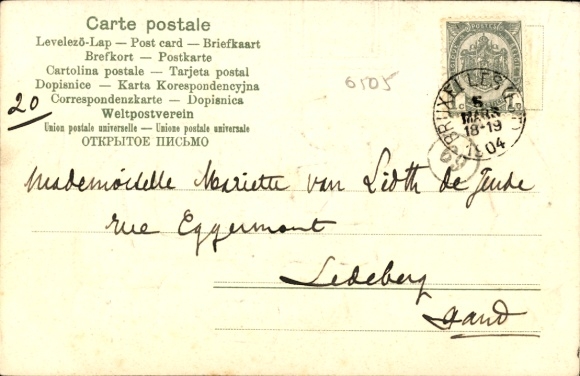 Carte postale
Levelező-Lap — Post card — Briefkaart
Brefkort — Postkarte
Cartolina postale — Tarjeta postal
Dopisnice — Karta Korespondencyjna
Correspondenzkarte — Dopisnica
Weltpostverein
Union postale universelle — Unione postale universale
ОТКРЫТОЕ ПИСЬМО
20
6105
BRUXELLES
5
MARS
18-19
1904
Mademoiselle Mariette van Lidth de Jeude
rue Eggermont
Ledeberg
Gand